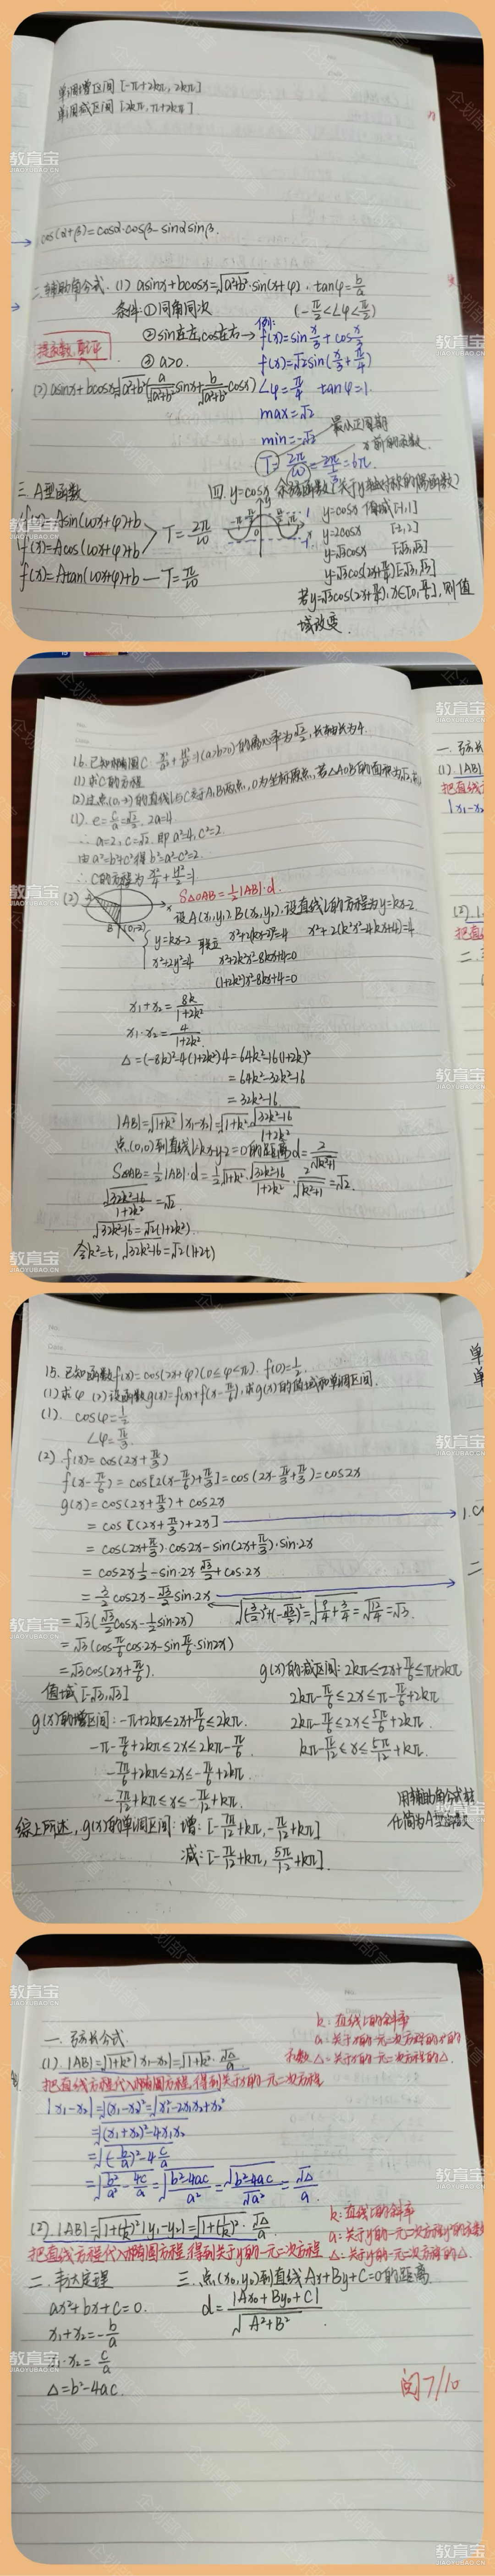 单调增区间 [-π+2kπ, 2kπ]
单调减区间 [2kπ, π+2kπ].
cos(α+β)=cosα·cosβ-sinαsinβ.
二.辅助角公式. (1) asinx+bcosx=√(a²+b²)·sin(x+φ), tanφ=b/a
条件 ①同角同次 (-π/2<∠φ<π/2)
②sin在左,cos在右→
③ a>0.
提系数
例:
f(x)=sin x/3+cos x/3
f(x)=√2sin(x/3+π/4)
(2) asinx+bcosx=√(a²+b²)(a/√(a²+b²) sinx+b/√(a²+b²) cosx)
∠φ=π/4 tanφ=1.
max=√2
min=-√2
最小正周期
T=2π/ω=2π/(1/3)=6π.
x前的系数.
三.A型函数
f(x)=Asin(ωx+φ)+b
f(x)=Acos(ωx+φ)+b
T=2π/ω
f(x)=Atan(ωx+φ)+b—T=π/ω
四.y=cosx 余弦函数(关于y轴对称的偶函数)
y=cosx 值域[-1,1]
y=2cosx [-2,2]
y=√3cosx [-√3,√3]
y=√3cos(2x+π/6)[-√3,√3]
若y=√3cos(2x+π/6),x∈[0,π/2],则值
域改变.
16.已知椭圆C:x²/a²+y²/b²=1(a>b>0)的离心率为√2/2,长轴长为4.
(1)求C的方程
(2)过点(0,-2)的直线l与C交于A,B两点,O为坐标原点,若△AOB的面积为√2,求
(1). e=c/a=√2/2, 2a=4
∴a=2, c=√2. 即a²=4, c²=2.
由a²=b²+c²得b²=a²-c²=2.
∴C的方程为x²/4+y²/2=1
(2)
S△OAB=1/2|AB|·d.
设A(x₁,y₁),B(x₂,y₂).设直线l的方程为y=kx-2
{y=kx-2
x²+2y²=4
联立 x²+2(kx-2)²=4 x²+2(k²x²-4kx+4)=4
x²+2k²x²-8kx+4=0
(1+2k²)x²-8kx+4=0
x₁+x₂=8k/(1+2k²)
x₁·x₂=4/(1+2k²)
△=(-8k)²-4(1+2k²)4=64k²-16(1+2k)²
=64k²-32k²-16
=32k²-16.
|AB|=√(1+k²)|x₁-x₂|=√(1+k²)·√(32k²-16)/(1+2k²)
点(0,0)到直线l:kx-y-2=0的距离d=2/√(k²+1)
S△OAB=1/2|AB|·d=1/2√(1+k²)·√(32k²-16)/(1+2k²)·2/√(k²+1)=√2.
√(32k²-16)/(1+2k²)=√2
√(32k²-16)=√2(1+2k²).
令k²=t,√(32k²-16)=√2(1+2t)
一.弦长
(1).|AB|
把直线
|x₁-x₂
15.已知函数f(x)=cos(2x+φ)(0≤φ<π). f(0)=1/2.
(1)求φ (2)设函数g(x)=f(x)+f(x-π/6),求g(x)的值域和单调区间.
(1). cosφ=1/2
∠φ=π/3.
(2) f(x)=cos(2x+π/3)
f(x-π/6)=cos[2(x-π/6)+π/3]=cos(2x-π/3+π/3)=cos2x
g(x)=cos(2x+π/3)+cos2x
=cos[(2x+π/3)+2x]
=cos(2x+π/3)·cos2x-sin(2x+π/3)·sin2x
=cos2x·1/2-sin2x·√3/2+cos2x
=3/2cos2x-√3/2sin2x
√((3/2)²+(-√3/2)²)=√(9/4+3/4)=√(12/4)=√3.
=√3(√3/2cos2x-1/2sin2x)
=√3(cosπ/6cos2x-sinπ/6·sin2x)
=√3cos(2x+π/6).
值域[-√3,√3]
g(x)的增区间:-π+2kπ≤2x+π/6≤2kπ.
-π-π/6+2kπ≤2x≤2kπ-π/6.
-7π/6+2kπ≤2x≤-π/6+2kπ.
-7π/12+kπ≤x≤-π/12+kπ.
g(x)的减区间:2kπ≤2x+π/6≤π+2kπ
2kπ-π/6≤2x≤π-π/6+2kπ
2kπ-π/6≤2x≤5π/6+2kπ.
kπ-π/12≤x≤5π/12+kπ.
用辅助角公式
化简为A型函数
综上所述,g(x)的单调区间:增:[-7π/12+kπ,-π/12+kπ]
减:[-π/12+kπ,5π/12+kπ].
一.弦长公式.
(1).|AB|=√(1+k²)|x₁-x₂|=√(1+k²)·√△/a
k:直线l的斜率
a:关于x的一元二次方程的x²的
系数 △:关于x的一元二次方程的△.
把直线方程代入椭圆方程,得到关于x的一元二次方程
|x₁-x₂|=√(x₁-x₂)²=√(x₁²-2x₁x₂+x₂²)
=√((x₁+x₂)²-4x₁x₂)
=√((-b/a)²-4c/a)
=√(b²/a²-4c/a)=√((b²-4ac)/a²)=√(b²-4ac)/√a²=√△/a
(2).|AB|=√(1+(1/k)²)|y₁-y₂|=√(1+(1/k)²)·√△/a
k:直线l的斜率
a:关于y的一元二次方程y²的系数
把直线方程代入椭圆方程得到关于y的一元二次方程 △:关于y的一元二次方程的△.
二.韦达定理
ax²+bx+c=0.
x₁+x₂=-b/a
x₁·x₂=c/a
△=b²-4ac.
三.点(x₀,y₀)到直线Ax+By+C=0的距离
d=|Ax₀+By₀+C|/√(A²+B²)
阅7/10
教育宝
JIAOYUBAO.CN
企划部宣